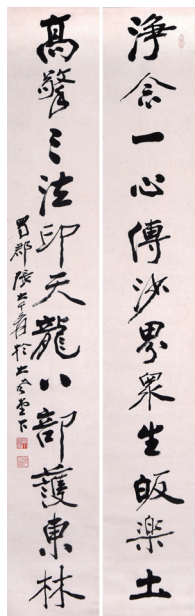 淨念一心傳沙界眾生皈樂土
高擎三法印天龍八部護東林
蜀郡張大千爰於大風堂下